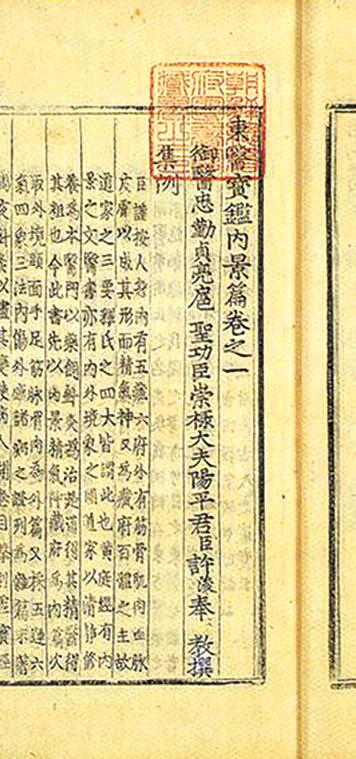 東醫寶鑑內景篇卷之一
御醫忠勤貞亮扈 聖功臣崇祿大夫陽平君臣許浚奉 教撰
集例
臣謹按人身內有五臟六府外有筋骨肌肉血脉
皮膚以成其形而精氣神又爲臟府百體之主故
道家之三要釋氏之四大皆謂此也黃庭經有內
景之文醫書亦有內外境象之圖道家以清靜修
養爲本醫門以藥餌鍼灸爲治是道得其精醫得
其粗也今此書先以內景精氣神藏府爲內篇次
取外境頭面手足筋脉骨肉爲外篇又採五運六
氣四象三法內傷外感諸病之證列爲雜篇末著